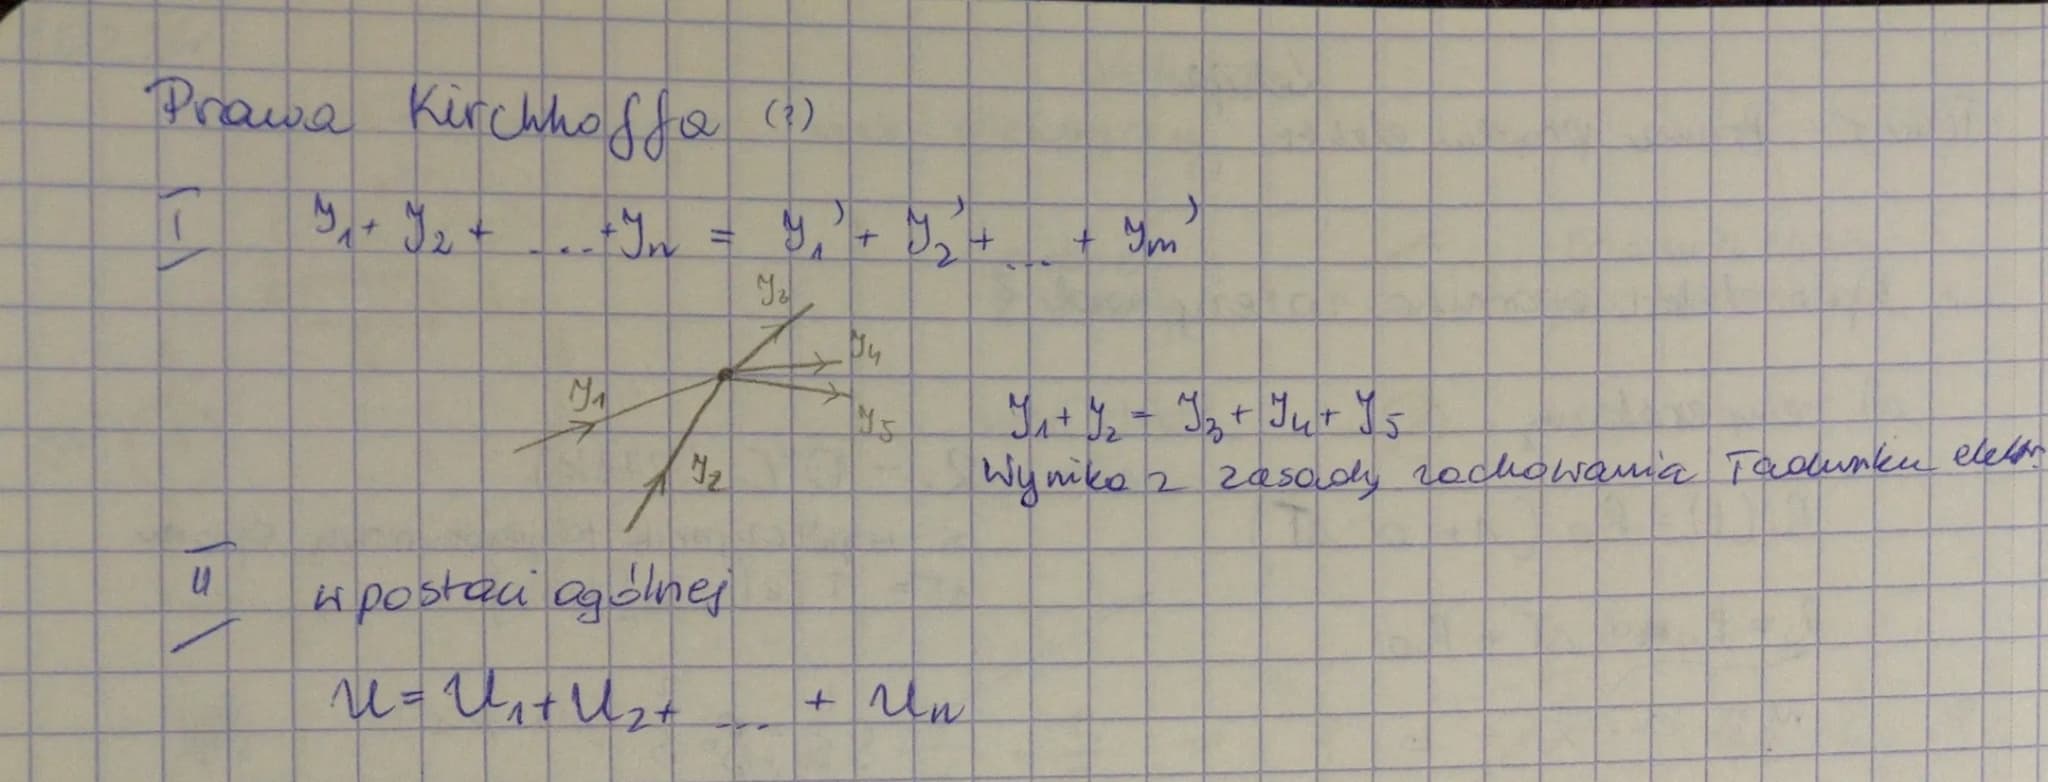 Prawa Kirchhoffa (?)
I J₁ + J₂ + ... + Jn = J₁' + J₂' + ... + Jm'
J₃
J₄
J₁
J₅
J₂
J₁ + J₂ = J₃ + J₄ + J₅
Wynika z zasady zachowania ładunku elektr.
II w postaci ogólnej
U = U₁ + U₂ + ... + Un